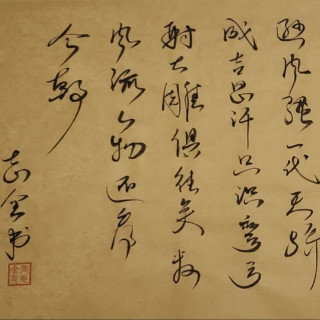 逊风骚一代天骄
成吉思汗只识弯弓
射大雕俱往矣数
风流人物还看
今朝
志书